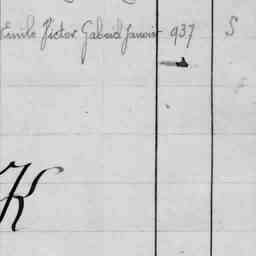 Emile Victor Gabriel Janvier 937 S
K